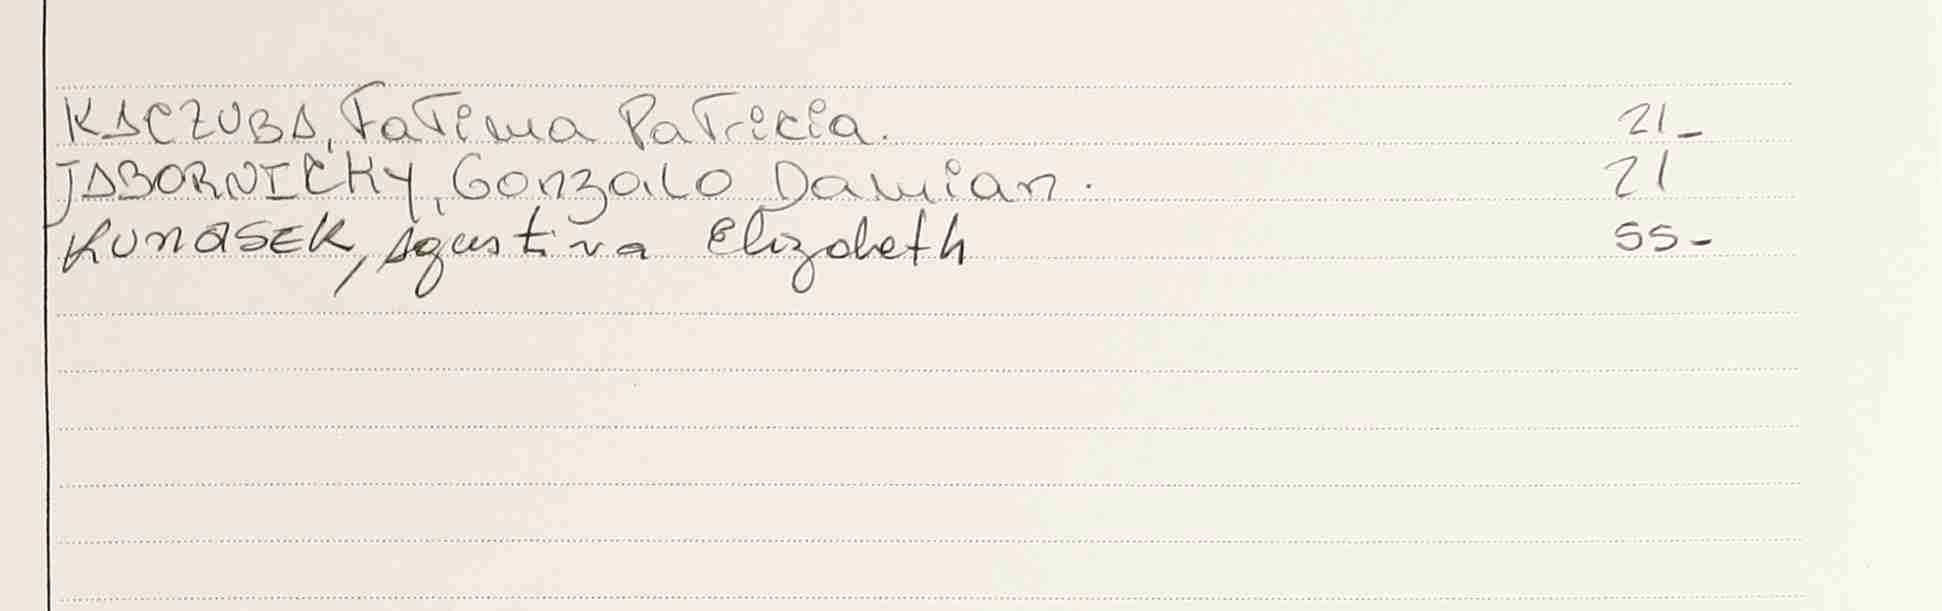 KACZUBA, Fatima Patricia. 21-
JABORNICKY, Gonzalo Damian. 21
KUNASEK, Agustina Elizabeth 55-